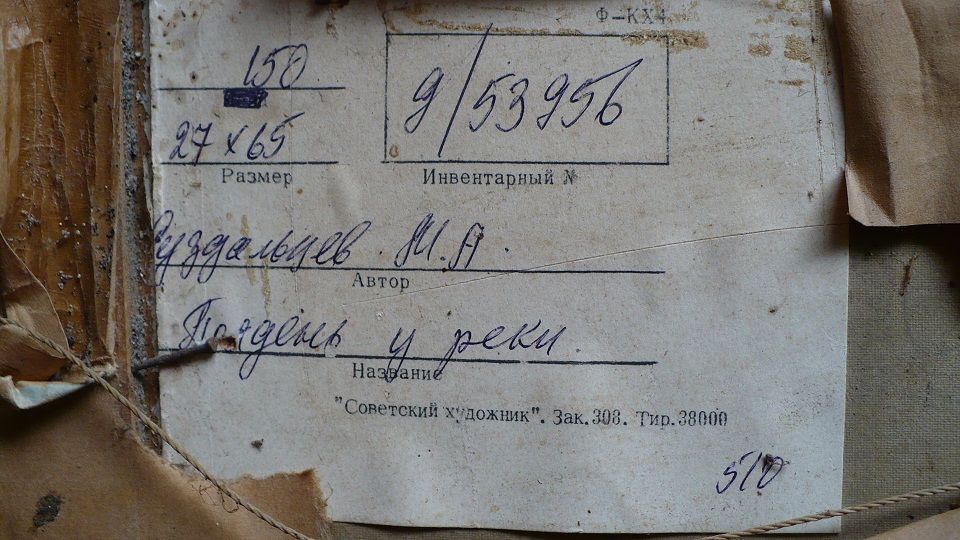 Ф-КХ4
150
9/53956
27 х 65
Размер
Инвентарный №
Суздальцев М.А.
Автор
Полдень у реки.
Название
"Советский художник". Зак.308. Тир.38000
510